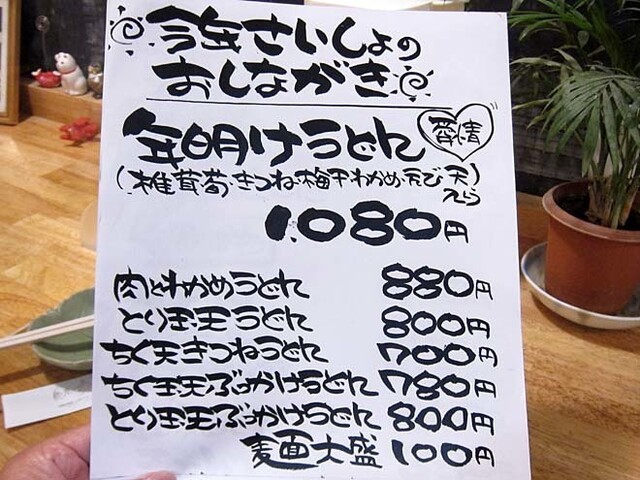 今年さいしょの
おしながき
年明けうどん
(椎茸筍・きつね・梅干わかめ・えび・天)
1.080円
肉とわかめうどん 880円
とり玉天うどん 800円
ちく天きつねうどん 700円
ちく玉天ぶっかけうどん 780円
とり玉天ぶっかけうどん 800円
麦面大盛 100円